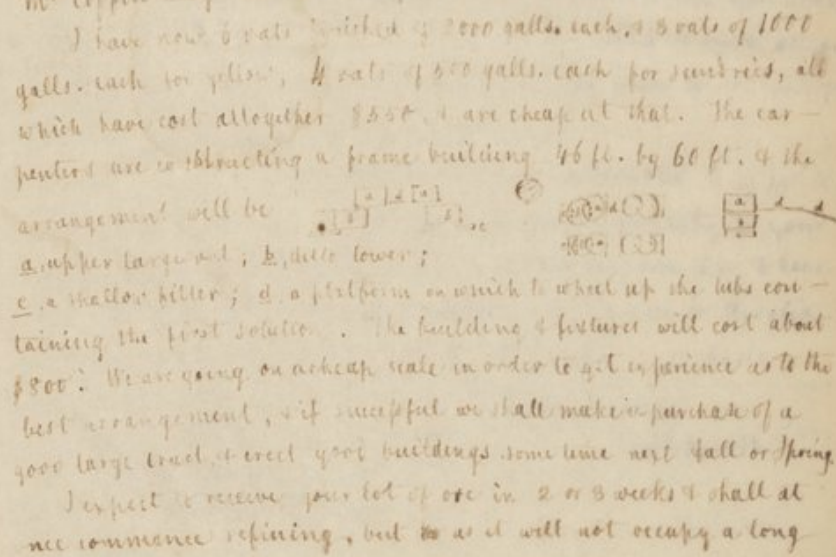 I have now 6 vats finished of 2000 galls. each, & 3 vats of 1000
galls. each for yellow, 4 vats of 500 galls. each for sundries, all
which have cost altogether $550, & are cheap at that. The car-
penters are constructing a frame building 46 ft. by 60 ft. & the
arrangement will be
a, upper large vat; b, ditto lower;
c, a shallow filter; d, a platform on which to wheel up the tubs con-
taining the first solution. The building & fixtures will cost about
$800. We are going on a cheap scale in order to get experience as to the
best arrangement, & if successful we shall make a purchase of a
good large tract, & erect good buildings some time next fall or Spring
I expect to receive your lot of ore in 2 or 3 weeks & shall at
nce commence refining, but as it will not occupy a long